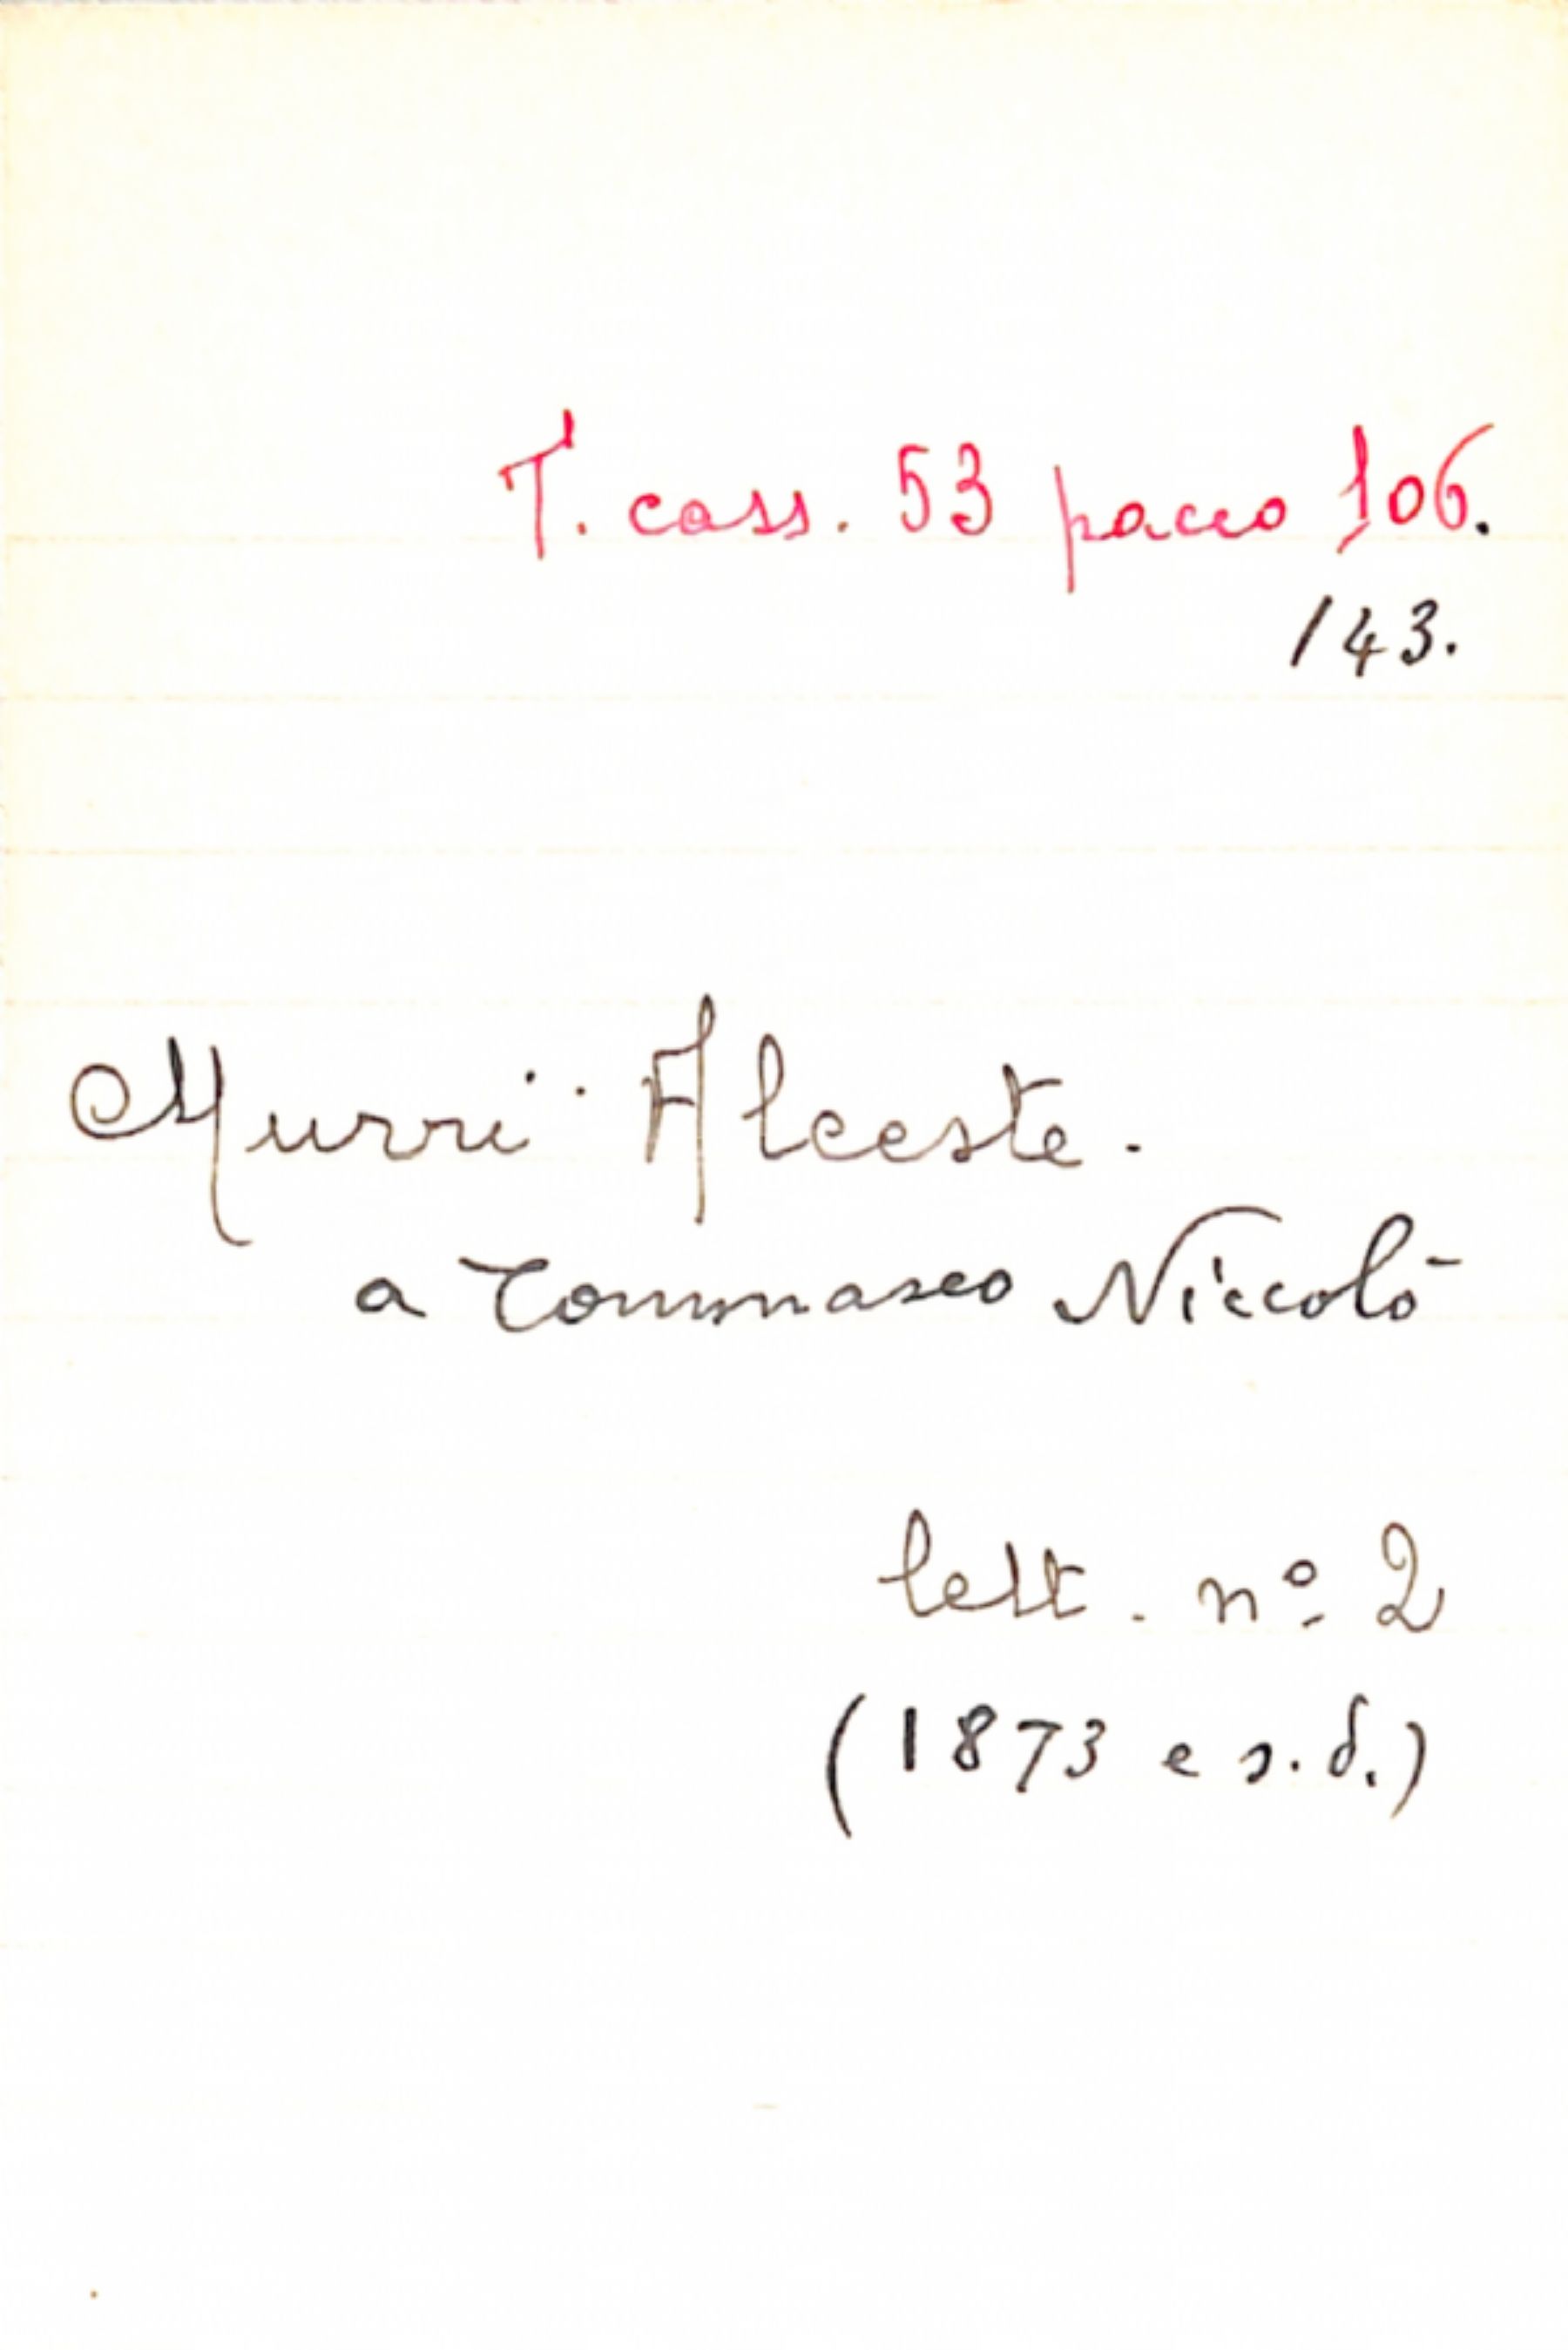 T. cass. 53 pacco 106.
143.
Murri Alceste.
a Tommaseo Niccolò
lett. nº 2
(1873 e s.d.)